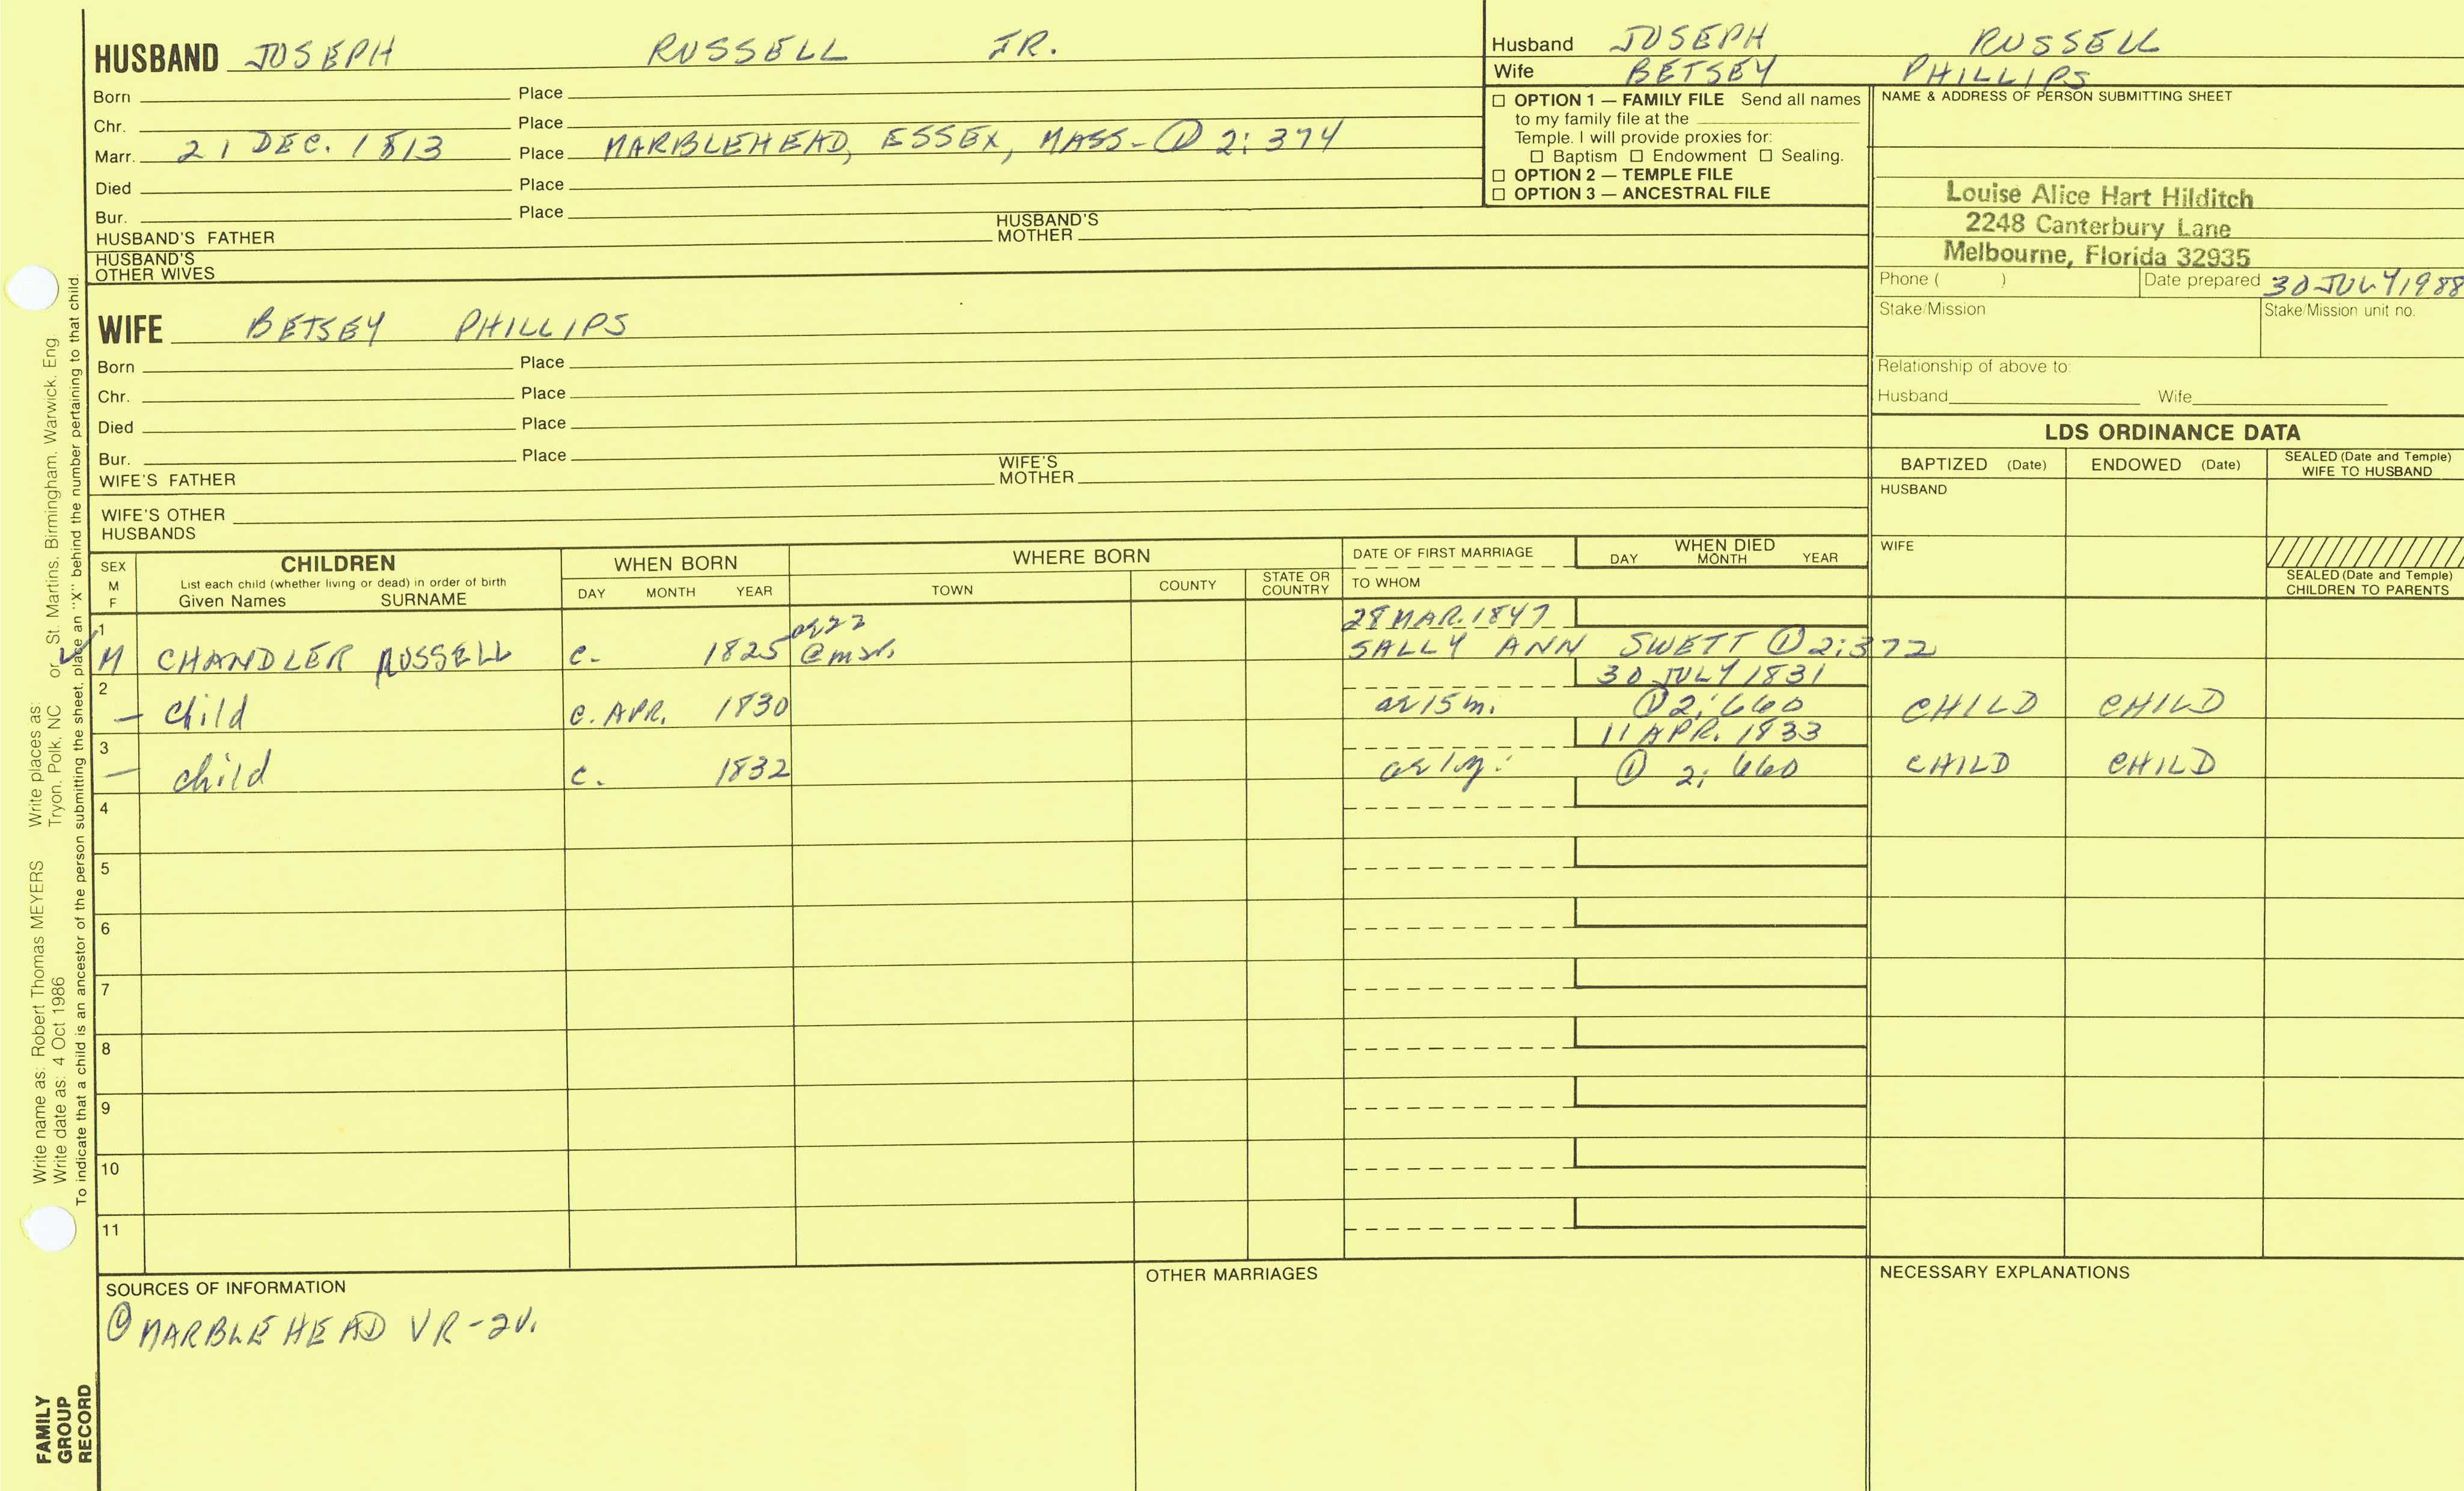 HUSBAND JOSEPH RUSSELL JR.
Born Place
Chr. Place
Marr. 21 DEC. 1813 Place MARBLEHEAD, ESSEX, MASS- ① 2:374
Died Place
Bur. Place
HUSBAND'S FATHER HUSBAND'S MOTHER
HUSBAND'S OTHER WIVES
WIFE BETSEY PHILLIPS
Born Place
Chr. Place
Died Place
Bur. Place
WIFE'S FATHER WIFE'S MOTHER
WIFE'S OTHER HUSBANDS
Husband JOSEPH RUSSELL
Wife BETSEY PHILLIPS
☐ OPTION 1 — FAMILY FILE Send all names
to my family file at the
Temple. I will provide proxies for:
☐ Baptism ☐ Endowment ☐ Sealing.
☐ OPTION 2 — TEMPLE FILE
☐ OPTION 3 — ANCESTRAL FILE
NAME & ADDRESS OF PERSON SUBMITTING SHEET
Louise Alice Hart Hilditch
2248 Canterbury Lane
Melbourne, Florida 32935
Phone ( ) Date prepared 30 JULY 1988
Stake/Mission Stake/Mission unit no.
Relationship of above to:
Husband Wife
LDS ORDINANCE DATA
BAPTIZED (Date) ENDOWED (Date) SEALED (Date and Temple) WIFE TO HUSBAND
HUSBAND
WIFE
SEALED (Date and Temple) CHILDREN TO PARENTS
SEX M F
CHILDREN
List each child (whether living or dead) in order of birth
Given Names SURNAME
WHEN BORN
DAY MONTH YEAR
WHERE BORN
TOWN COUNTY STATE OR COUNTRY
DATE OF FIRST MARRIAGE
TO WHOM
WHEN DIED
DAY MONTH YEAR
1 ae 22 28 MAR. 1847
✓ M CHANDLER RUSSELL c. 1825 @ SALLY ANN SWETT ① 2:372
2 30 JULY 1831
— child c. APR. 1830 ae 15 m. ① 2:660 CHILD CHILD
3 11 APR. 1833
— child c. 1832 ae 1 y. ① 2:660 CHILD CHILD
4
5
6
7
8
9
10
11
SOURCES OF INFORMATION
① MARBLEHEAD VR - 2V.
OTHER MARRIAGES
NECESSARY EXPLANATIONS
Write name as: Robert Thomas MEYERS Write places as:
Write date as: 4 Oct 1986 Tryon, Polk, NC or St. Martins, Birmingham, Warwick, Eng.
To indicate that a child is an ancestor of the person submitting the sheet, place an "X" behind the number pertaining to that child.
FAMILY
GROUP
RECORD